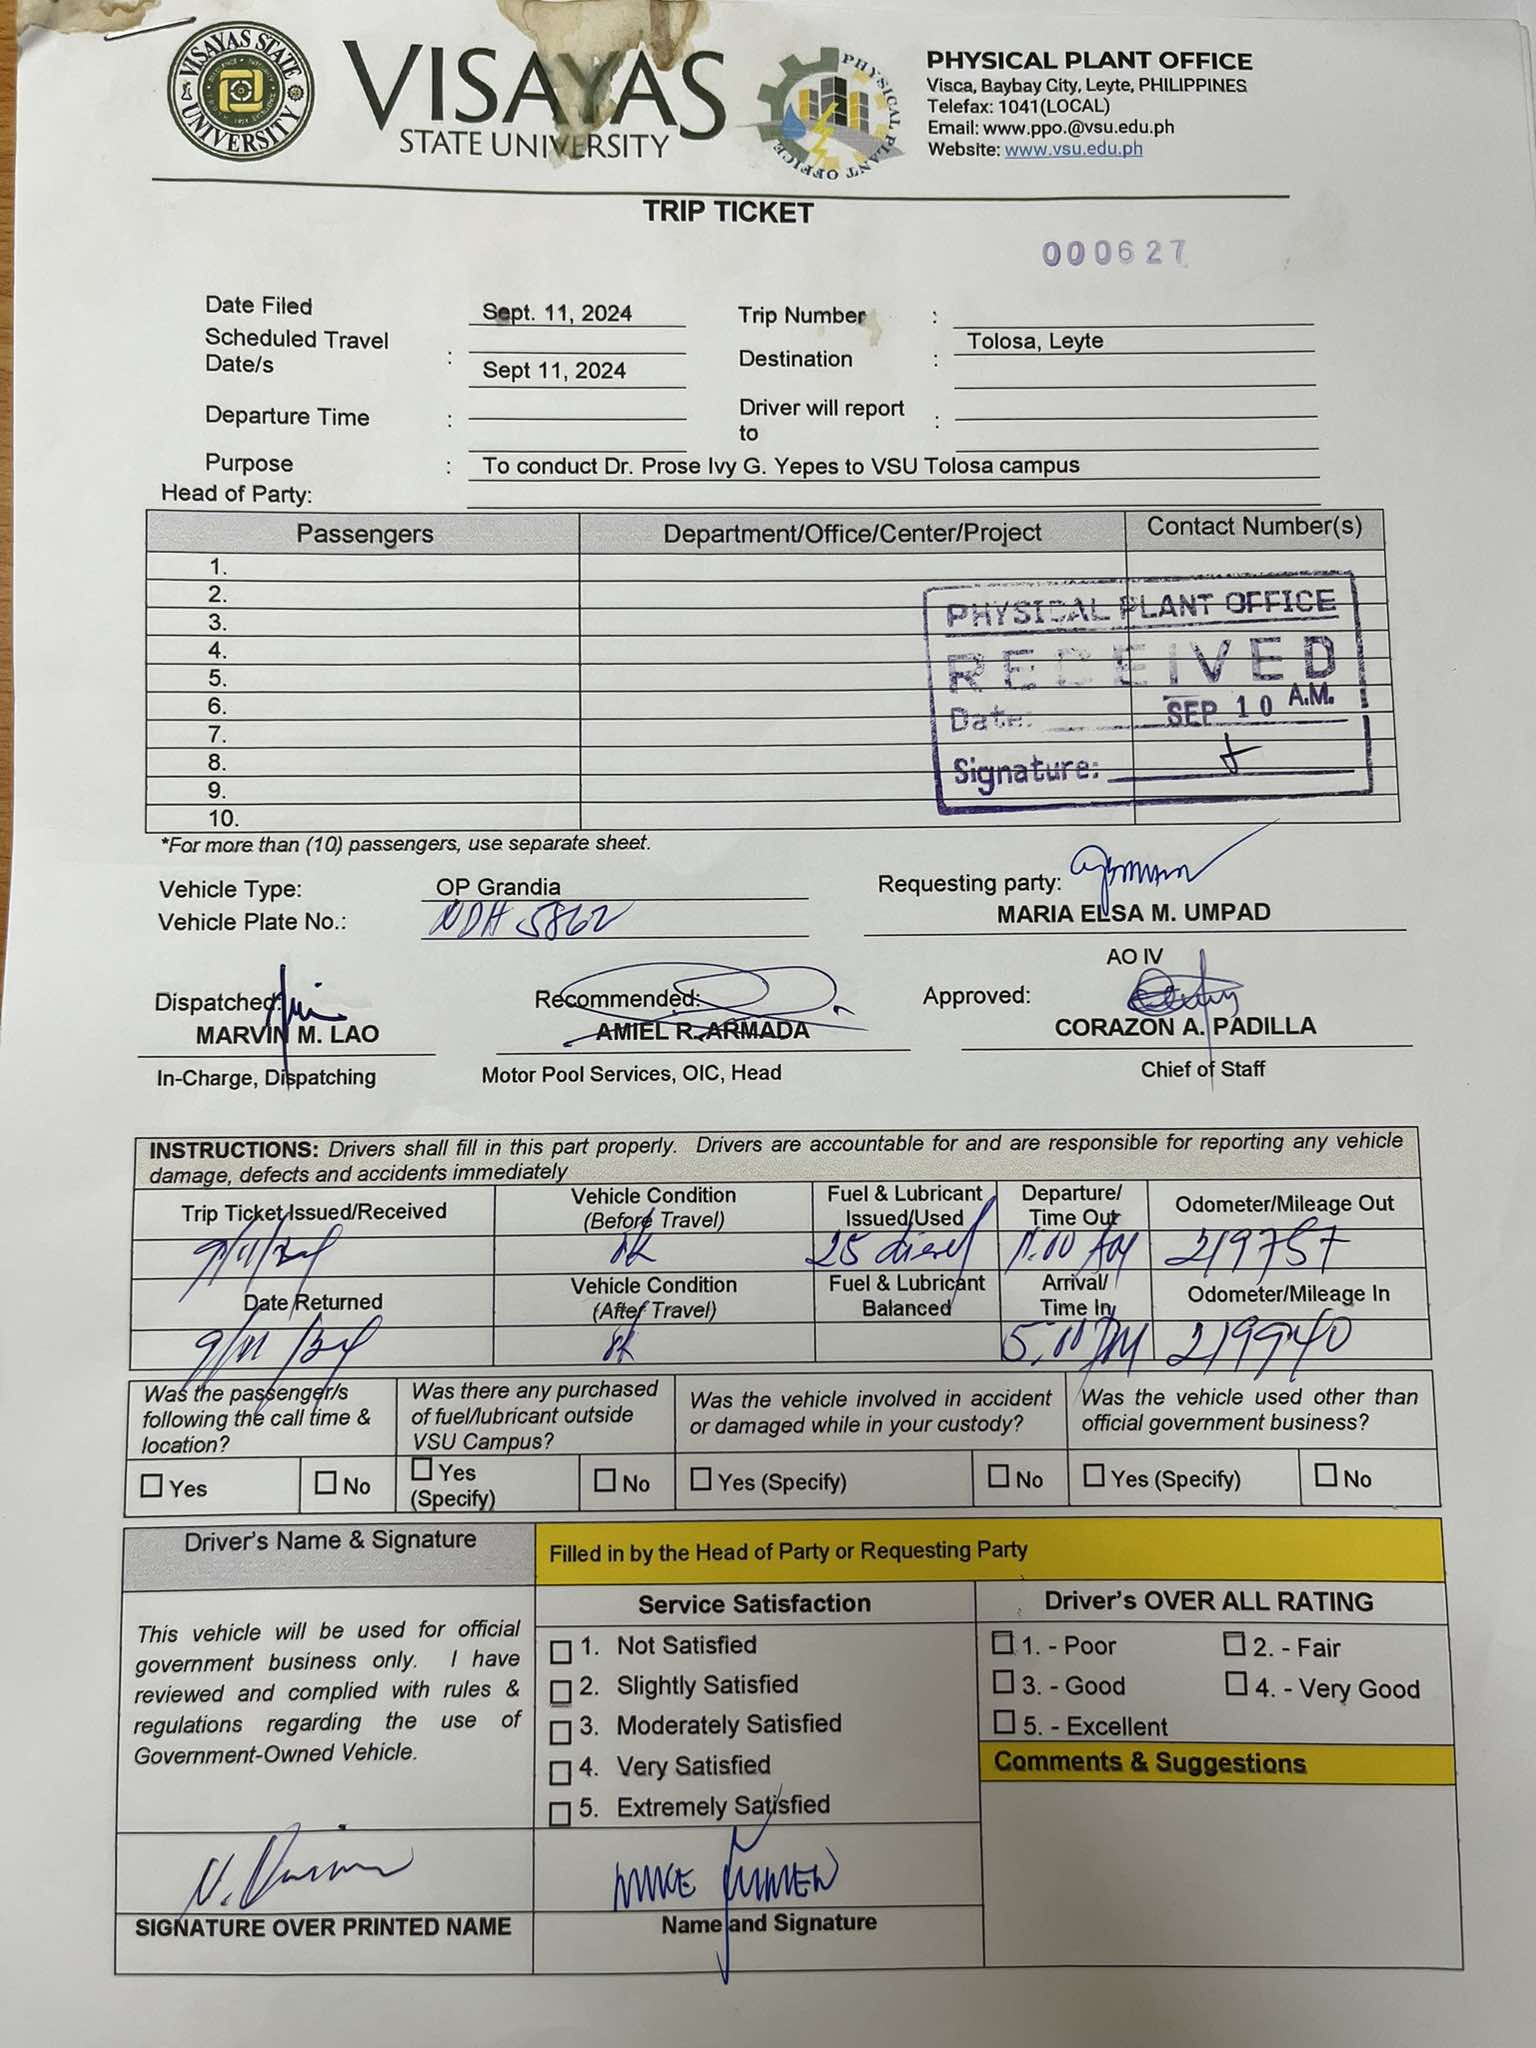 VISAYAS STATE UNIVERSITY
VISAYAS
STATE UNIVERSITY
PHYSICAL PLANT OFFICE
PHYSICAL PLANT OFFICE
Visca, Baybay City, Leyte, PHILIPPINES
Telefax: 1041(LOCAL)
Email: www.ppo.@vsu.edu.ph
Website: www.vsu.edu.ph
TRIP TICKET
000627
Date Filed Sept. 11, 2024 Trip Number :
Scheduled Travel Date/s : Sept 11, 2024 Destination : Tolosa, Leyte
Departure Time : Driver will report to :
Purpose : To conduct Dr. Prose Ivy G. Yepes to VSU Tolosa campus
Head of Party:
Passengers Department/Office/Center/Project Contact Number(s)
1.
2.
3.
4.
5.
6.
7.
8.
9.
10.
PHYSICAL PLANT OFFICE
RECEIVED
Date: SEP 10 A.M.
Signature:
*For more than (10) passengers, use separate sheet.
Vehicle Type: OP Grandia Requesting party:
Vehicle Plate No.: NDH 5862 MARIA ELSA M. UMPAD
AO IV
Dispatched: Recommended: Approved:
MARVIN M. LAO AMIEL R. ARMADA CORAZON A. PADILLA
In-Charge, Dispatching Motor Pool Services, OIC, Head Chief of Staff
INSTRUCTIONS: Drivers shall fill in this part properly. Drivers are accountable for and are responsible for reporting any vehicle
damage, defects and accidents immediately
Trip Ticket Issued/Received Vehicle Condition (Before Travel) Fuel & Lubricant Issued/Used Departure/ Time Out Odometer/Mileage Out
9/11/24 ok 25 diesel 219757
Date Returned Vehicle Condition (After Travel) Fuel & Lubricant Balanced Arrival/ Time In Odometer/Mileage In
9/11/24 ok 5:00 PM 219940
Was the passenger/s following the call time & location? Was there any purchased of fuel/lubricant outside VSU Campus? Was the vehicle involved in accident or damaged while in your custody? Was the vehicle used other than official government business?
Yes No Yes (Specify) No Yes (Specify) No Yes (Specify) No
Driver's Name & Signature Filled in by the Head of Party or Requesting Party
This vehicle will be used for official
government business only. I have
reviewed and complied with rules &
regulations regarding the use of
Government-Owned Vehicle.
SIGNATURE OVER PRINTED NAME
Service Satisfaction
1. Not Satisfied
2. Slightly Satisfied
3. Moderately Satisfied
4. Very Satisfied
5. Extremely Satisfied
Name and Signature
Driver's OVER ALL RATING
1. - Poor 2. - Fair
3. - Good 4. - Very Good
5. - Excellent
Comments & Suggestions